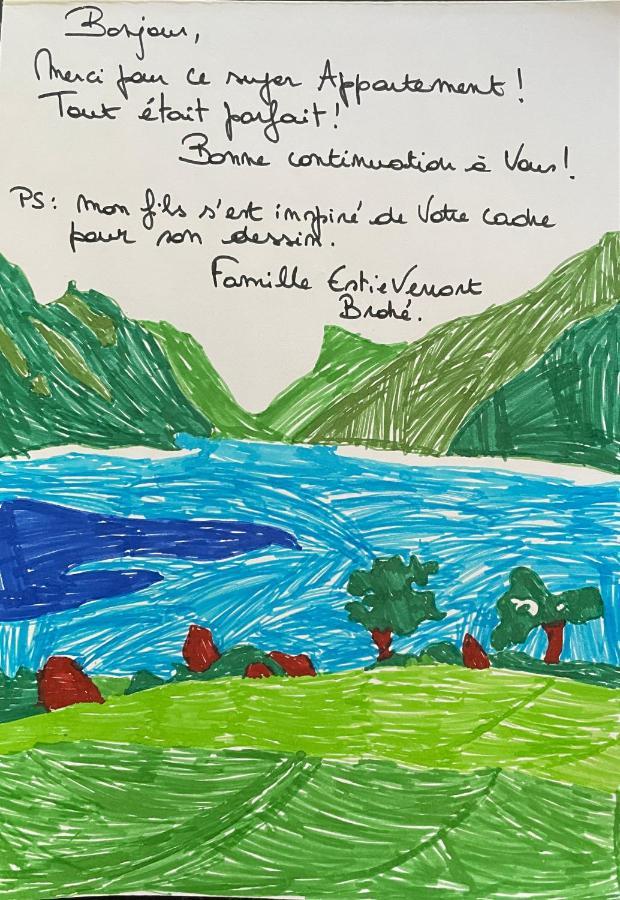 Bonjour,
Merci pour ce super Appartement !
Tout était parfait !
Bonne continuation à Vous !
PS : mon fils s'est inspiré de Votre cadre
pour son dessin.
Famille